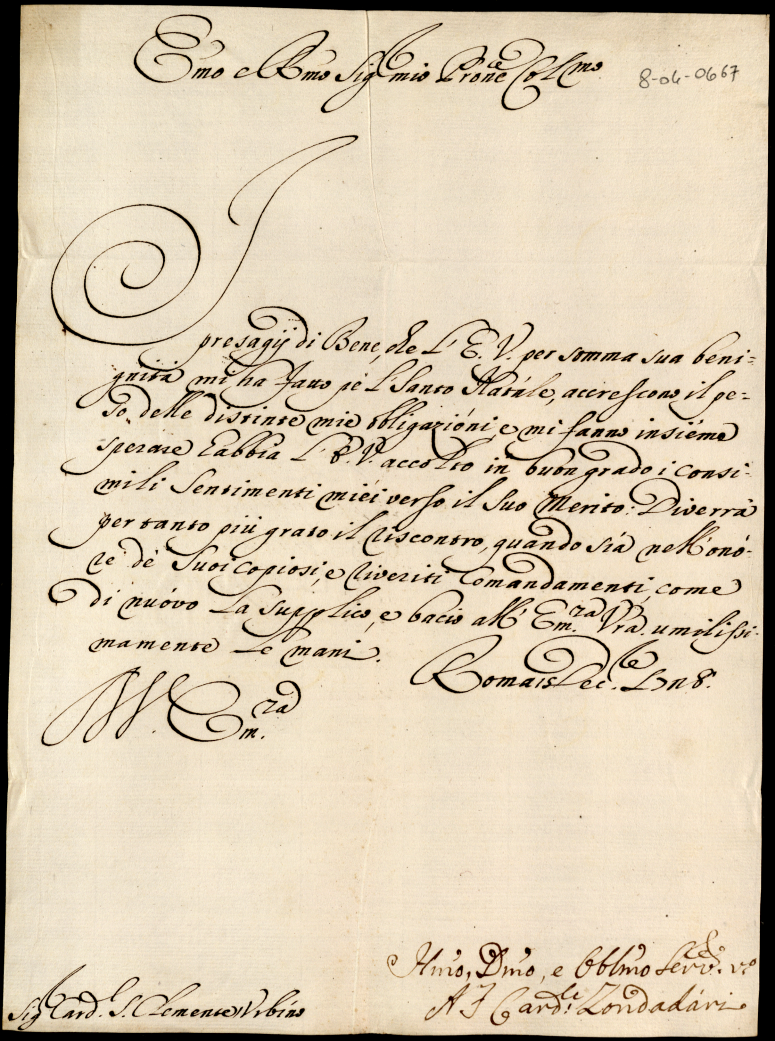 Emo e Rmo Sig.r mio Prone Collmo
8-04-0667
I
presagij di Bene, che L'E. V. per somma sua beni=
gnità mi ha fatto pe 'l Santo Natále, accrescono il pe=
so, delle distinte mie obbligazióni, e mi fanno insiéme
sperare habbia L'E. V. accolto in buon grado i consi=
mili Sentimenti miéi verso il Suo Merito: Diverrà
per tanto più grato il riscontro, quando sia nell'onó=
re dé Suoi copiosi, e riveriti Comandamenti, come
di nuóvo La Supplico, e bacio all'Em.za Vra. umilissi=
mamente Le mani. 
Roma 15 Dec.bre
V. Em.za
Hmo, Dmo, e Obblmo Serv.re vo
Sig.r Card. S. Clemente Urbino
A F Card.le Zondadári